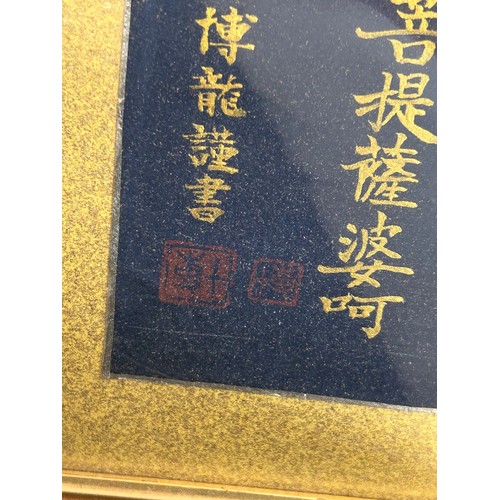 菩提薩婆呵
博龍謹書